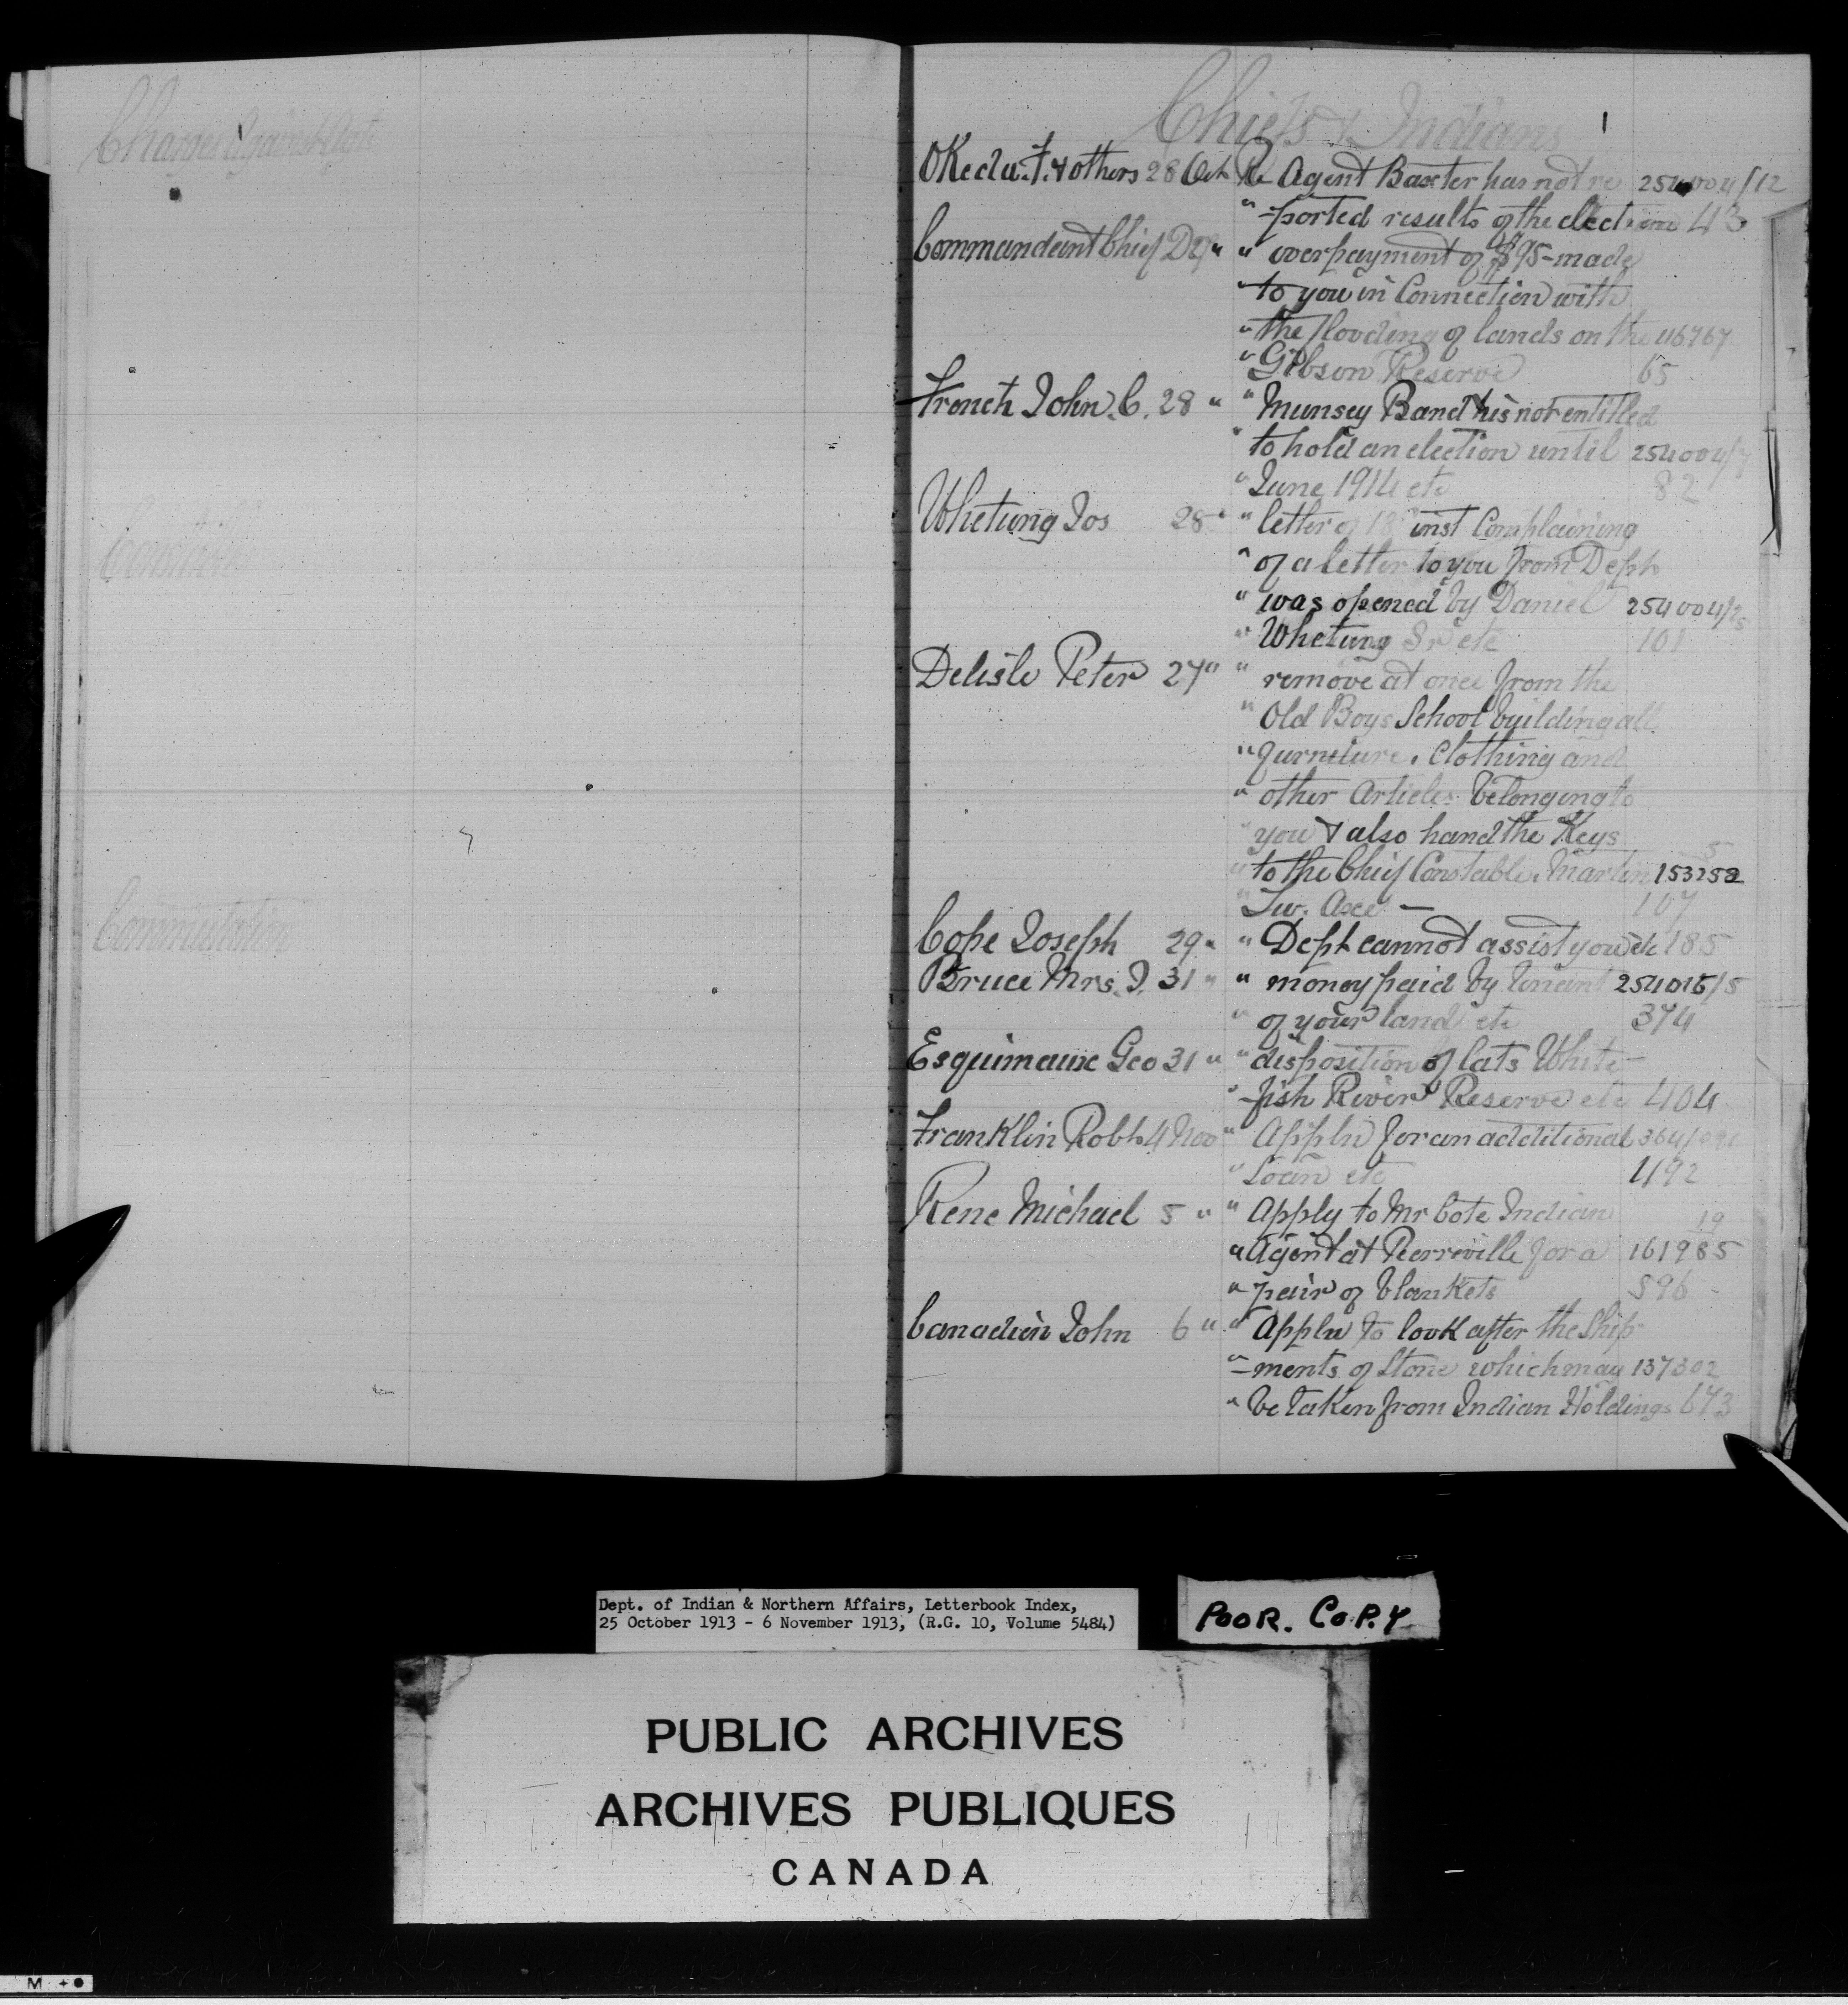 Charges Against Agts
Constables
Commutation
Chiefs & Indians 1
Okeda. F. & others 28 Oct Re Agent Baxter has not re 254004/12
" -ported results of the election 43
Commandant Chief D 27 " " overpayment of $95 - made
" to you in Connection with
" the flooding of lands on the 116767
" Gibson Reserve 65
French John. C. 28 " " Munsey Band his not entitled
" to hold an election until 254004/7
" June 1914 etc 82
Whetung Jos 28 " " letter of 18 inst Complaining
" of a letter to you from Dept
" was opened by Daniel 254004/25
" Whetung Sr etc 101
Delisle Peter 27 " " remove at once from the
" Old Boys School building all
" furneture, Clothing and
" other Articles belonging to
" you & also hand the Keys
" to the Chief Constable. Martin 153252 5
" 107
Cope Joseph 29 " " Dept cannot assist you etc 185
Bruce Mrs. J. 31 " " money paid by tenant 254015/5
" of your land etc 374
Esquimaux Geo 31 " " disposition of lots White-
" -fish River Reserve etc 404
Franklin Robt 4 Nov " Appln for an additional 364/091
" Loan etc 492
Rene Michael 5 " " Apply to Mr Cote Indian 19
" Agent at Pierreville for a 161985
" pair of blankets 596
Canadien John 6 " " Appln to look after the Ship-
" -ments of Stone which may 137302
" be taken from Indian Holdings 673
Dept. of Indian & Northern Affairs, Letterbook Index,
25 October 1913 - 6 November 1913, (R.G. 10, Volume 5484)
POOR. COPY
PUBLIC ARCHIVES
ARCHIVES PUBLIQUES
CANADA
M + ●